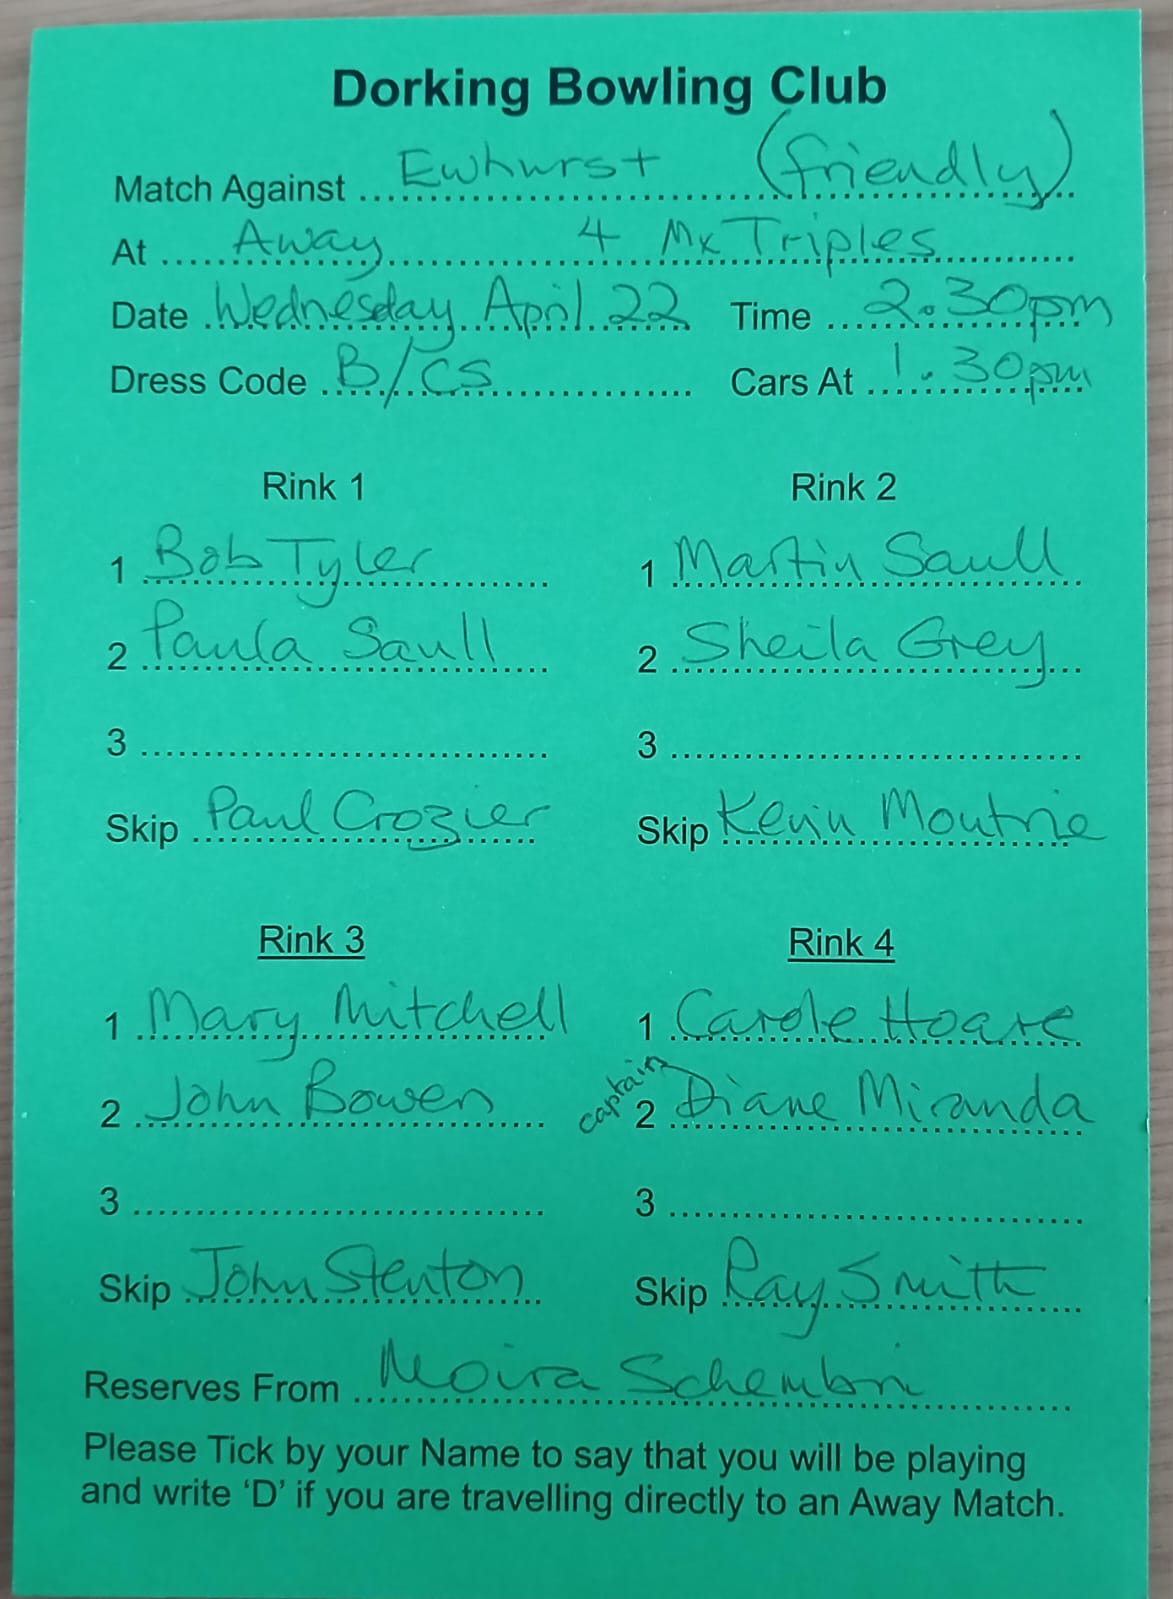 Dorking Bowling Club
Match Against Ewhurst (friendly)
At Away 4 Mx Triples
Date Wednesday April 22 Time 2.30pm
Dress Code B/CS Cars At 1.30pm
Rink 1
1 Bob Tyler
2 Paula Saull
3
Skip Paul Crozier
Rink 2
1 Martin Saull
2 Sheila Grey
3
Skip Kevin Moutrie
Rink 3
1 Mary Mitchell
2 John Bowen
3
Skip John Stenton
Rink 4
1 Carole Hoare
captain 2 Diane Miranda
3
Skip Ray Smith
Reserves From Moira Schembri
Please Tick by your Name to say that you will be playing
and write ‘D’ if you are travelling directly to an Away Match.